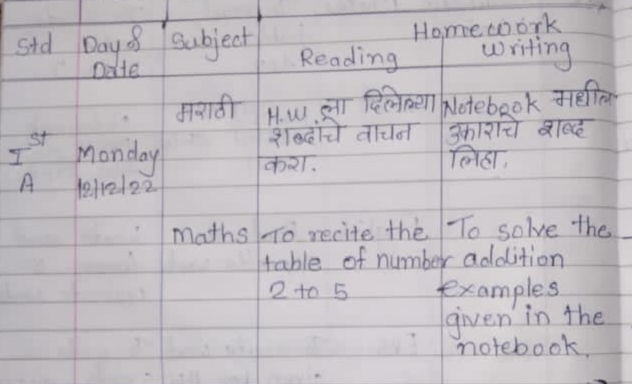 Homework
Std Day & Subject Reading Writing
Date
मराठी H.W. ला दिलेल्या Notebook मधील
शब्दांचे वाचन उकाराचे शब्द
Ist Monday करा. लिहा.
A 12/12/22
Maths To recite the To solve the
table of number addition
2 to 5 examples
given in the
notebook.